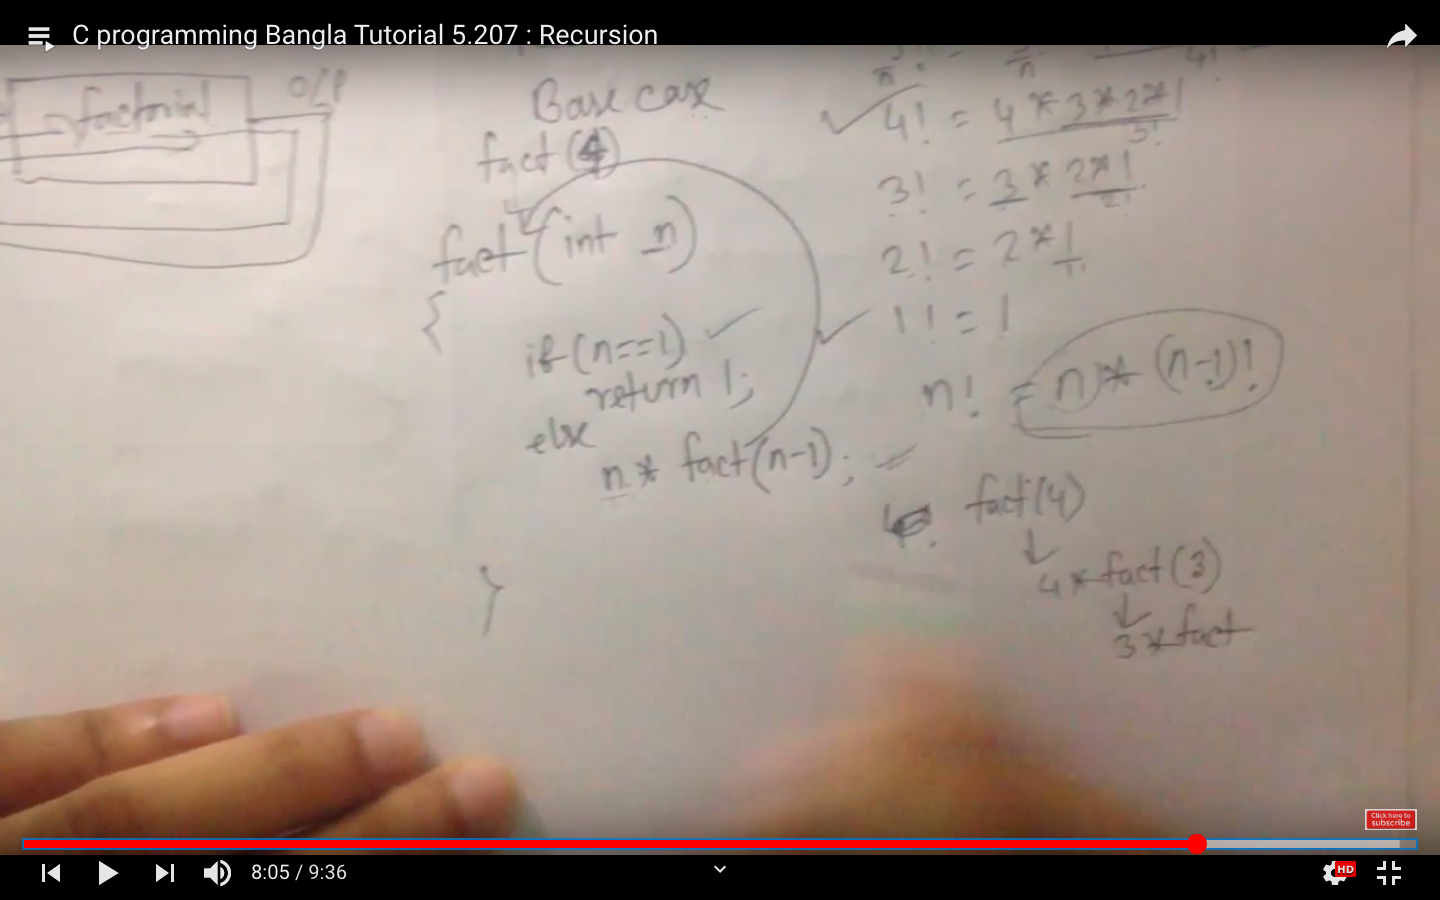 C programming Bangla Tutorial 5.207 : Recursion
factorial
O/P
Base case
fact (4)
fact (int n)
{
if (n==1)
return 1;
else
n * fact(n-1);
}
4!
4! = 4 * 3 * 2 * 1
3!
3! = 3 * 2 * 1
2!
2! = 2 * 1
1!
1! = 1
n! = n * (n-1)!
fact(4)
4 * fact(3)
3 * fact
Click here to
subscribe
8:05 / 9:36
HD